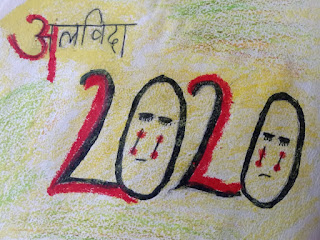 अलविदा
2020